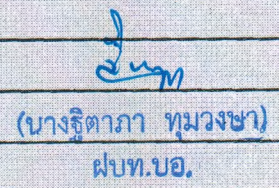 (นางฐิตาภา ทุมวงษา)
ฝบท.บอ.